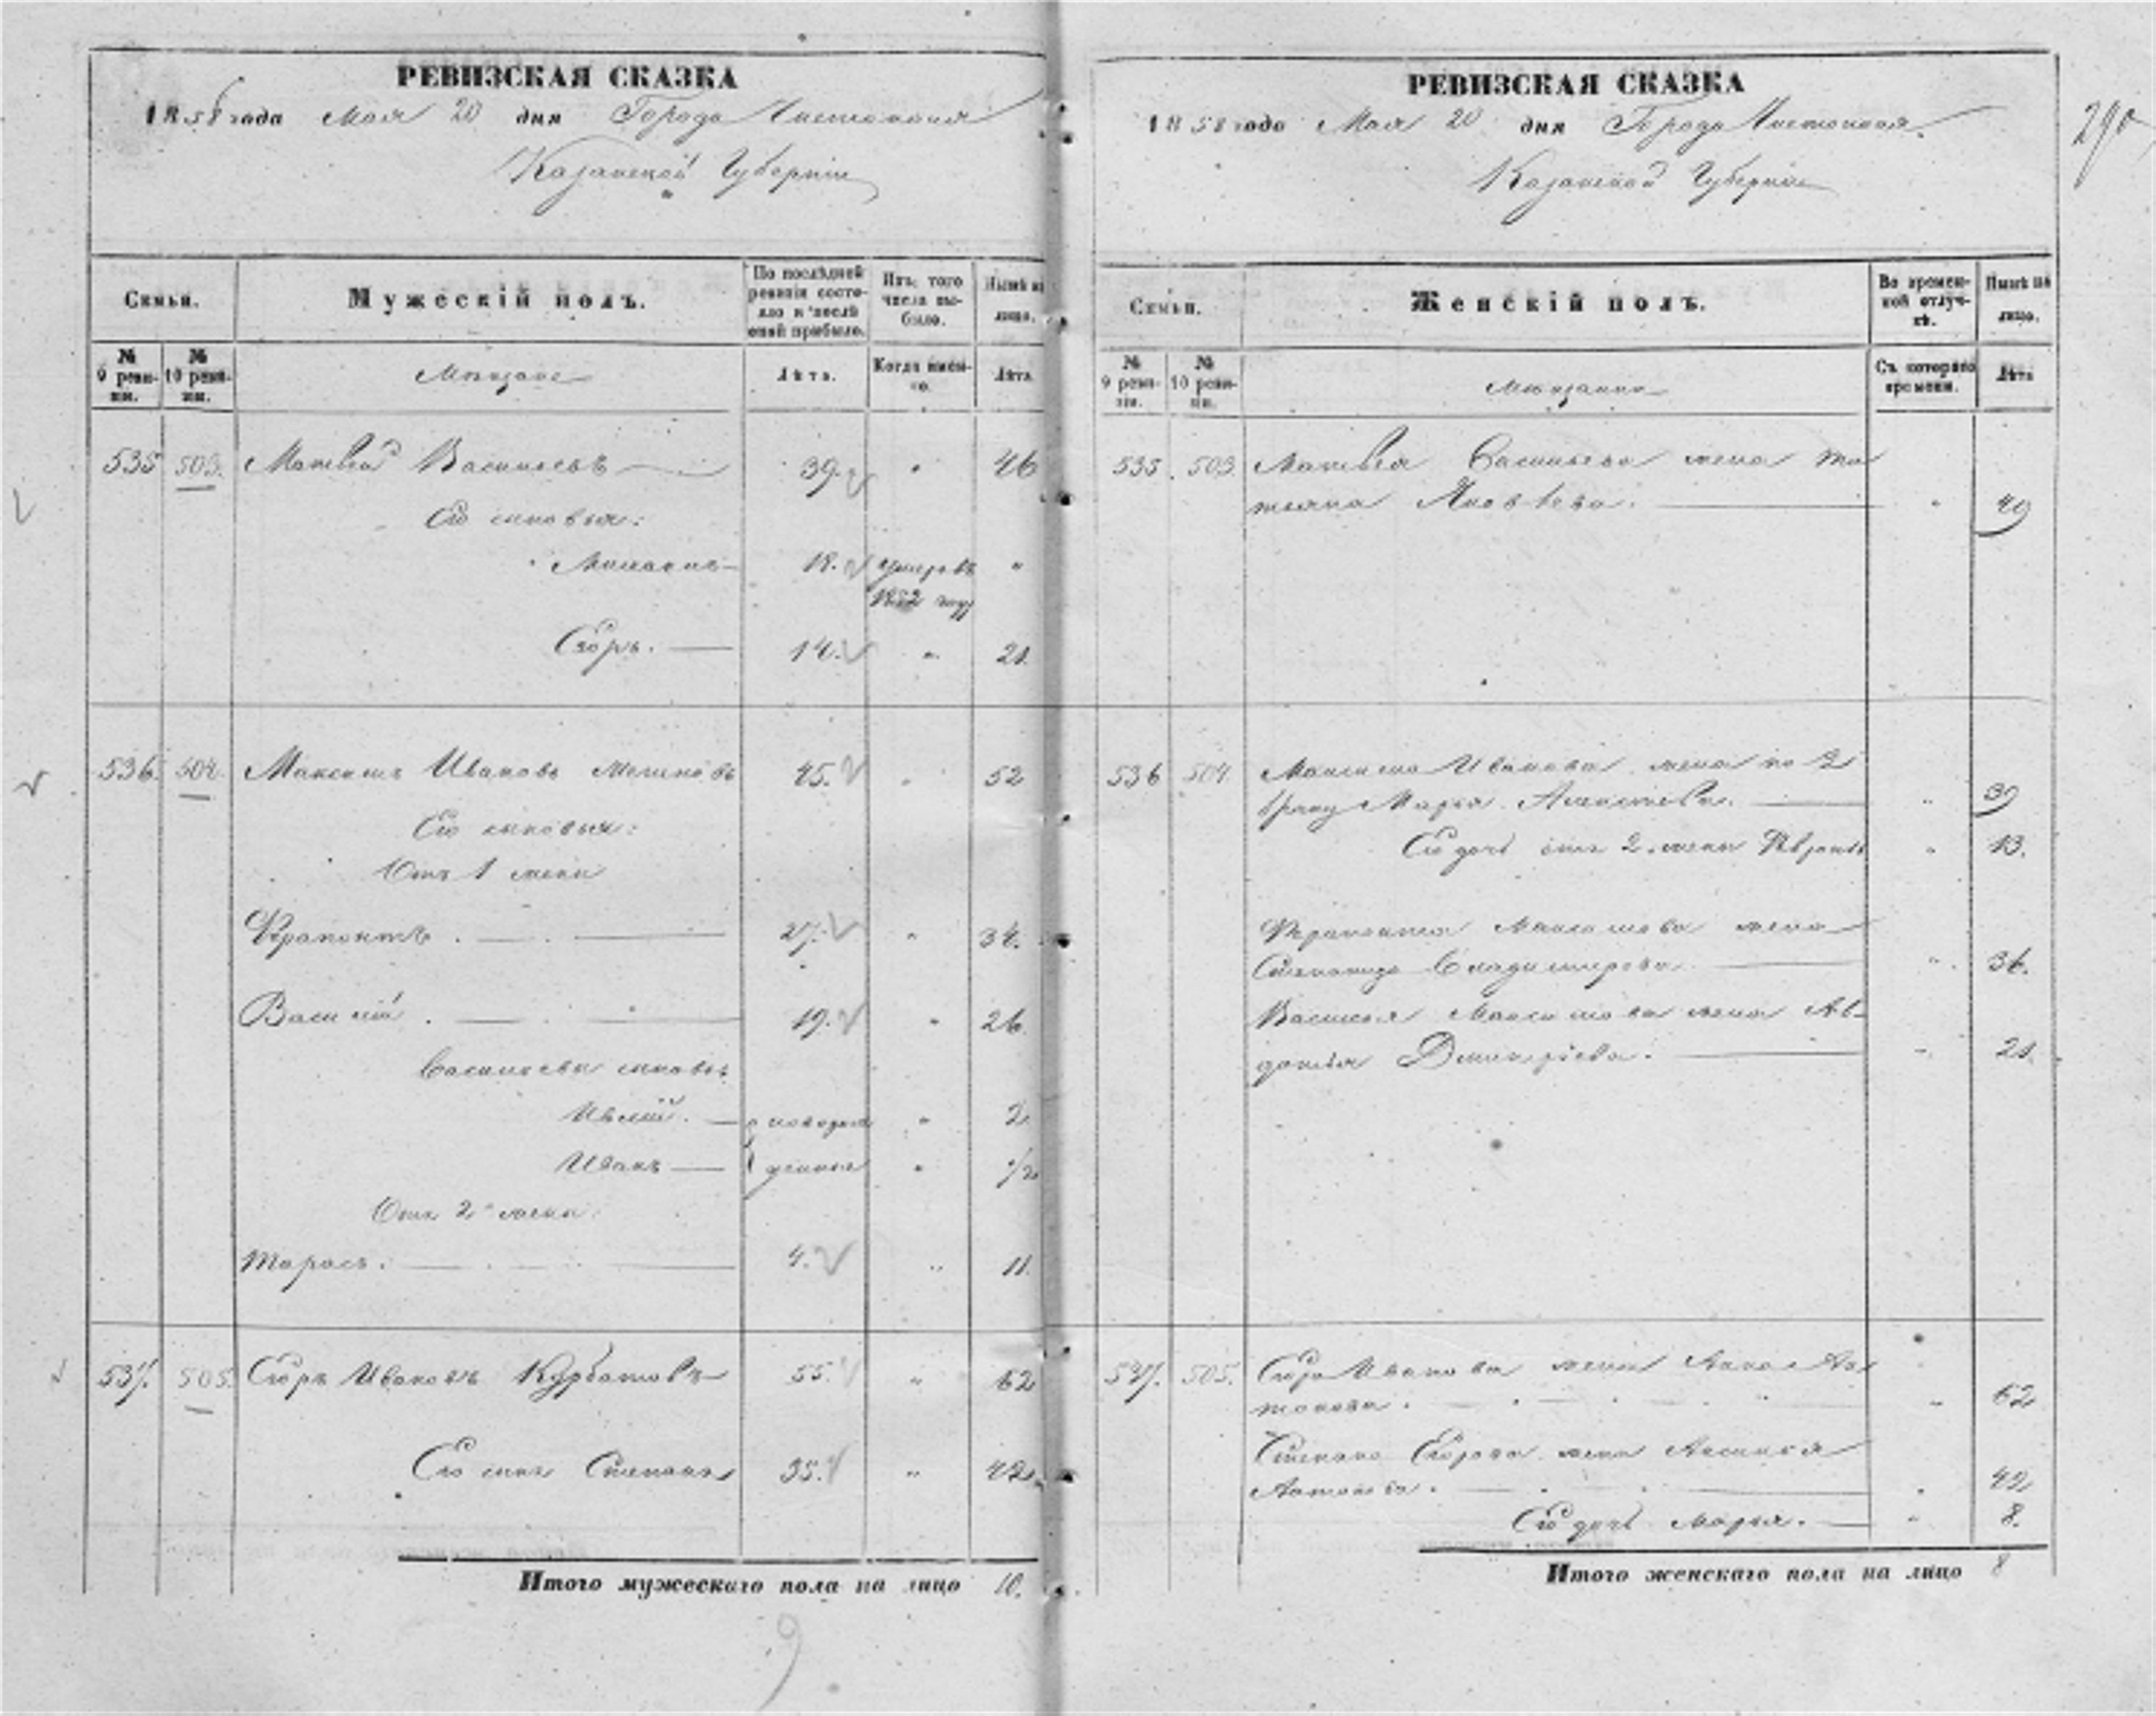 РЕВИЗСКАЯ СКАЗКА
1858 года Мая 20 дня Города Чистополя
Казанской Губернии
Семьи.
Мужескій полъ.
По послѣдней ревизіи состояло и послѣ оной прибыло.
Изъ того числа выбыло.
Нынѣ на лицо.
№ 9 ревизіи.
№ 10 ревизіи.
Мѣщане
Лѣта.
Когда именно.
Лѣта
535 503. Матвей Васильевъ 39. " 46
Его сыновья:
18. умеръ въ "
1852 году
Егоръ. 14. " 21.
536. 504. Максимъ Ивановъ 45. " 52
Его сыновья:
Отъ 1 жены
Ферапонтъ. 27. " 34.
Василій. 19. " 26.
Васильевы сыновья
новорож " 2
Иванъ денные " 1/2
Отъ 2 жены.
Тарасъ. 4. " 11.
537. 505. Егоръ Ивановъ Курбатовъ 55. " 62
Его сынъ Степанъ 35. " 42.
Итого мужескаго пола на лицо 10.
9
РЕВИЗСКАЯ СКАЗКА
1858 года Мая 20 дня Города Чистополя.
Казанской Губерніи
290
Семьи.
Женскій полъ.
Во временной отлучкѣ.
Нынѣ на лицо.
№ 9 ревизіи.
№ 10 ревизіи.
Мѣщанки
Съ котораго времени.
Лѣта
535. 503. Матвея Васильева жена Та
тьяна Яковлева. " 49
536 504. Максима Иванова жена по 2
браку Марья Алексеева. " 39
Его дочь отъ 2 жены " 13.
Ферапонта Максимова жена
Степанида Владимирова " 36.
Василья Максимова жена Ав-
дотья Дмитріева. " 21.
537. 505. Егора Иванова жена Анна Ан
тонова. " 62
Степана Егорова жена Аксинья
Антонова. " 42
Его дочь Марья. " 8.
Итого женскаго пола на лицо 8